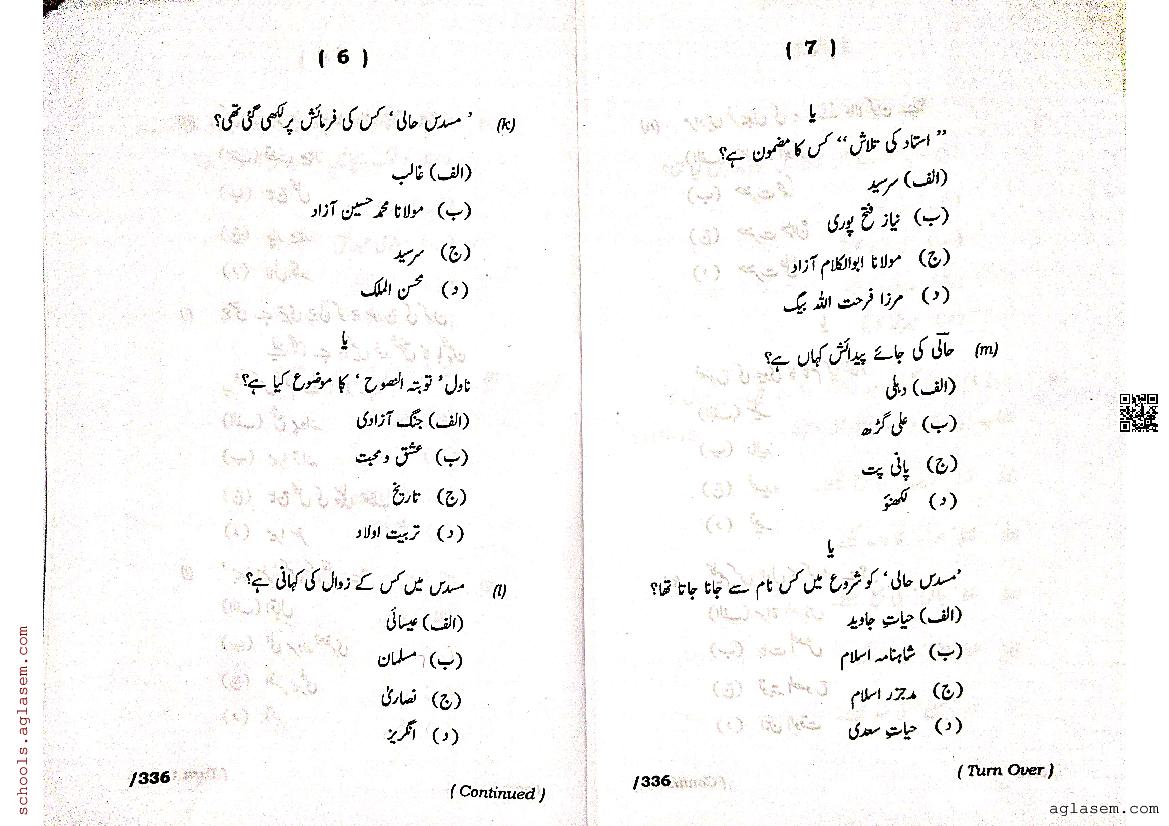 ( 6 )
(k) ' مسدس حالی' کس کی فرمائش پر لکھی گئی تھی؟
(الف) غالب
(ب) مولانا محمد حسین آزاد
(ج) سرسید
(د) محسن الملک
یا
ناول' توبتہ النصوح ' کا موضوع کیا ہے؟
(الف) جنگ آزادی
(ب) عشق و محبت
(ج) تاریخ
(د) تربیت اولاد
(l) مسدس میں کس کے زوال کی کہانی ہے؟
(الف) عیسائی
(ب) مسلمان
(ج) نصاریٰ
(د) انگریز
/336
( Continued )
( 7 )
یا
" استاد کی تلاش" کس کا مضمون ہے؟
(الف) سرسید
(ب) نیاز فتح پوری
(ج) مولانا ابوالکلام آزاد
(د) مرزا فرحت اللہ بیگ
(m) حالی کی جائے پیدائش کہاں ہے؟
(الف) دہلی
(ب) علی گڑھ
(ج) پانی پت
(د) لکھنؤ
یا
'مسدس حالی' کو شروع میں کس نام سے جانا جاتا تھا؟
(الف) حیاتِ جاوید
(ب) شاہنامہ اسلام
(ج) مدجزر اسلام
(د) حیاتِ سعدی
/336
( Turn Over )
schools.aglasem.com
aglasem.com